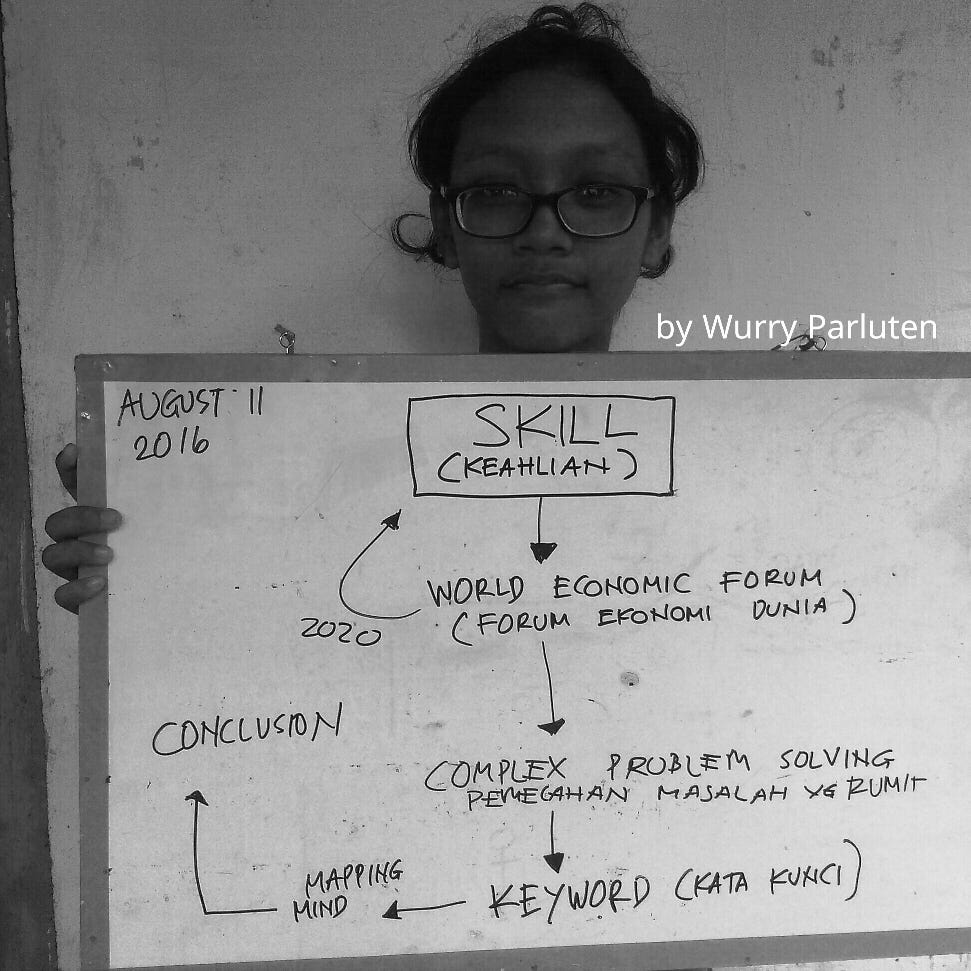 by Wurry Parluten
AUGUST 11
2016
SKILL
(KEAHLIAN)
WORLD ECONOMIC FORUM
(FORUM EKONOMI DUNIA)
2020
CONCLUSION
COMPLEX PROBLEM SOLVING
PEMECAHAN MASALAH YG RUMIT
MAPPING
MIND
KEYWORD (KATA KUNCI)